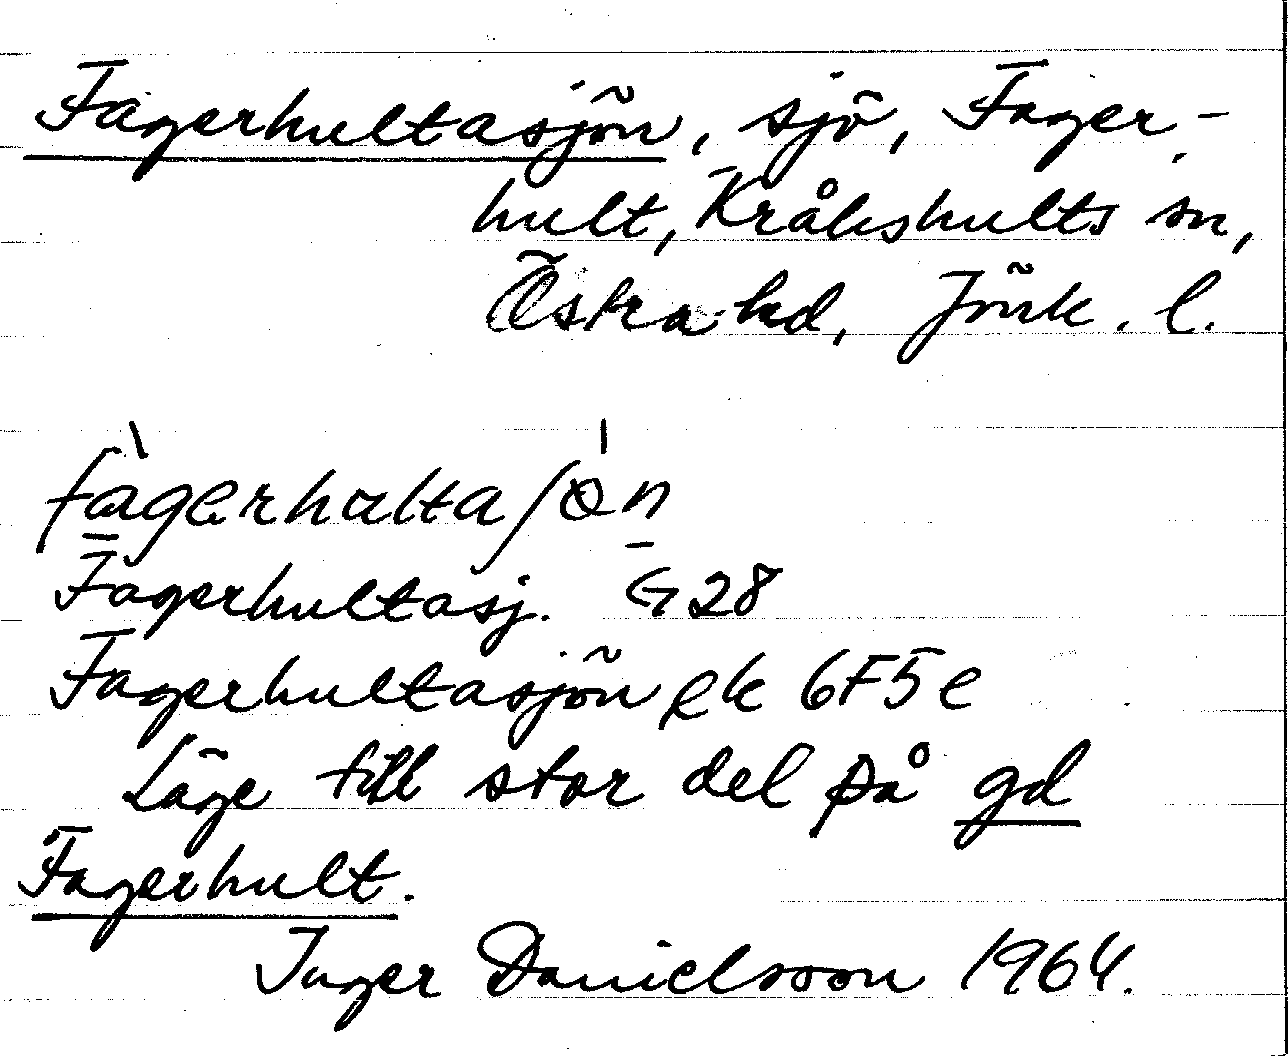 Fagerhultasjön, sjö, Fager-
hult, Kråkshults sn,
Östra hd, Jönk. l.
fàgerhulta/ɵ́n
Fagerhultasj. G 28
Fagerhultasjön ek 6F5e
Läge till stor del på gd
Fagerhult.
Inger Danielsson 1964.